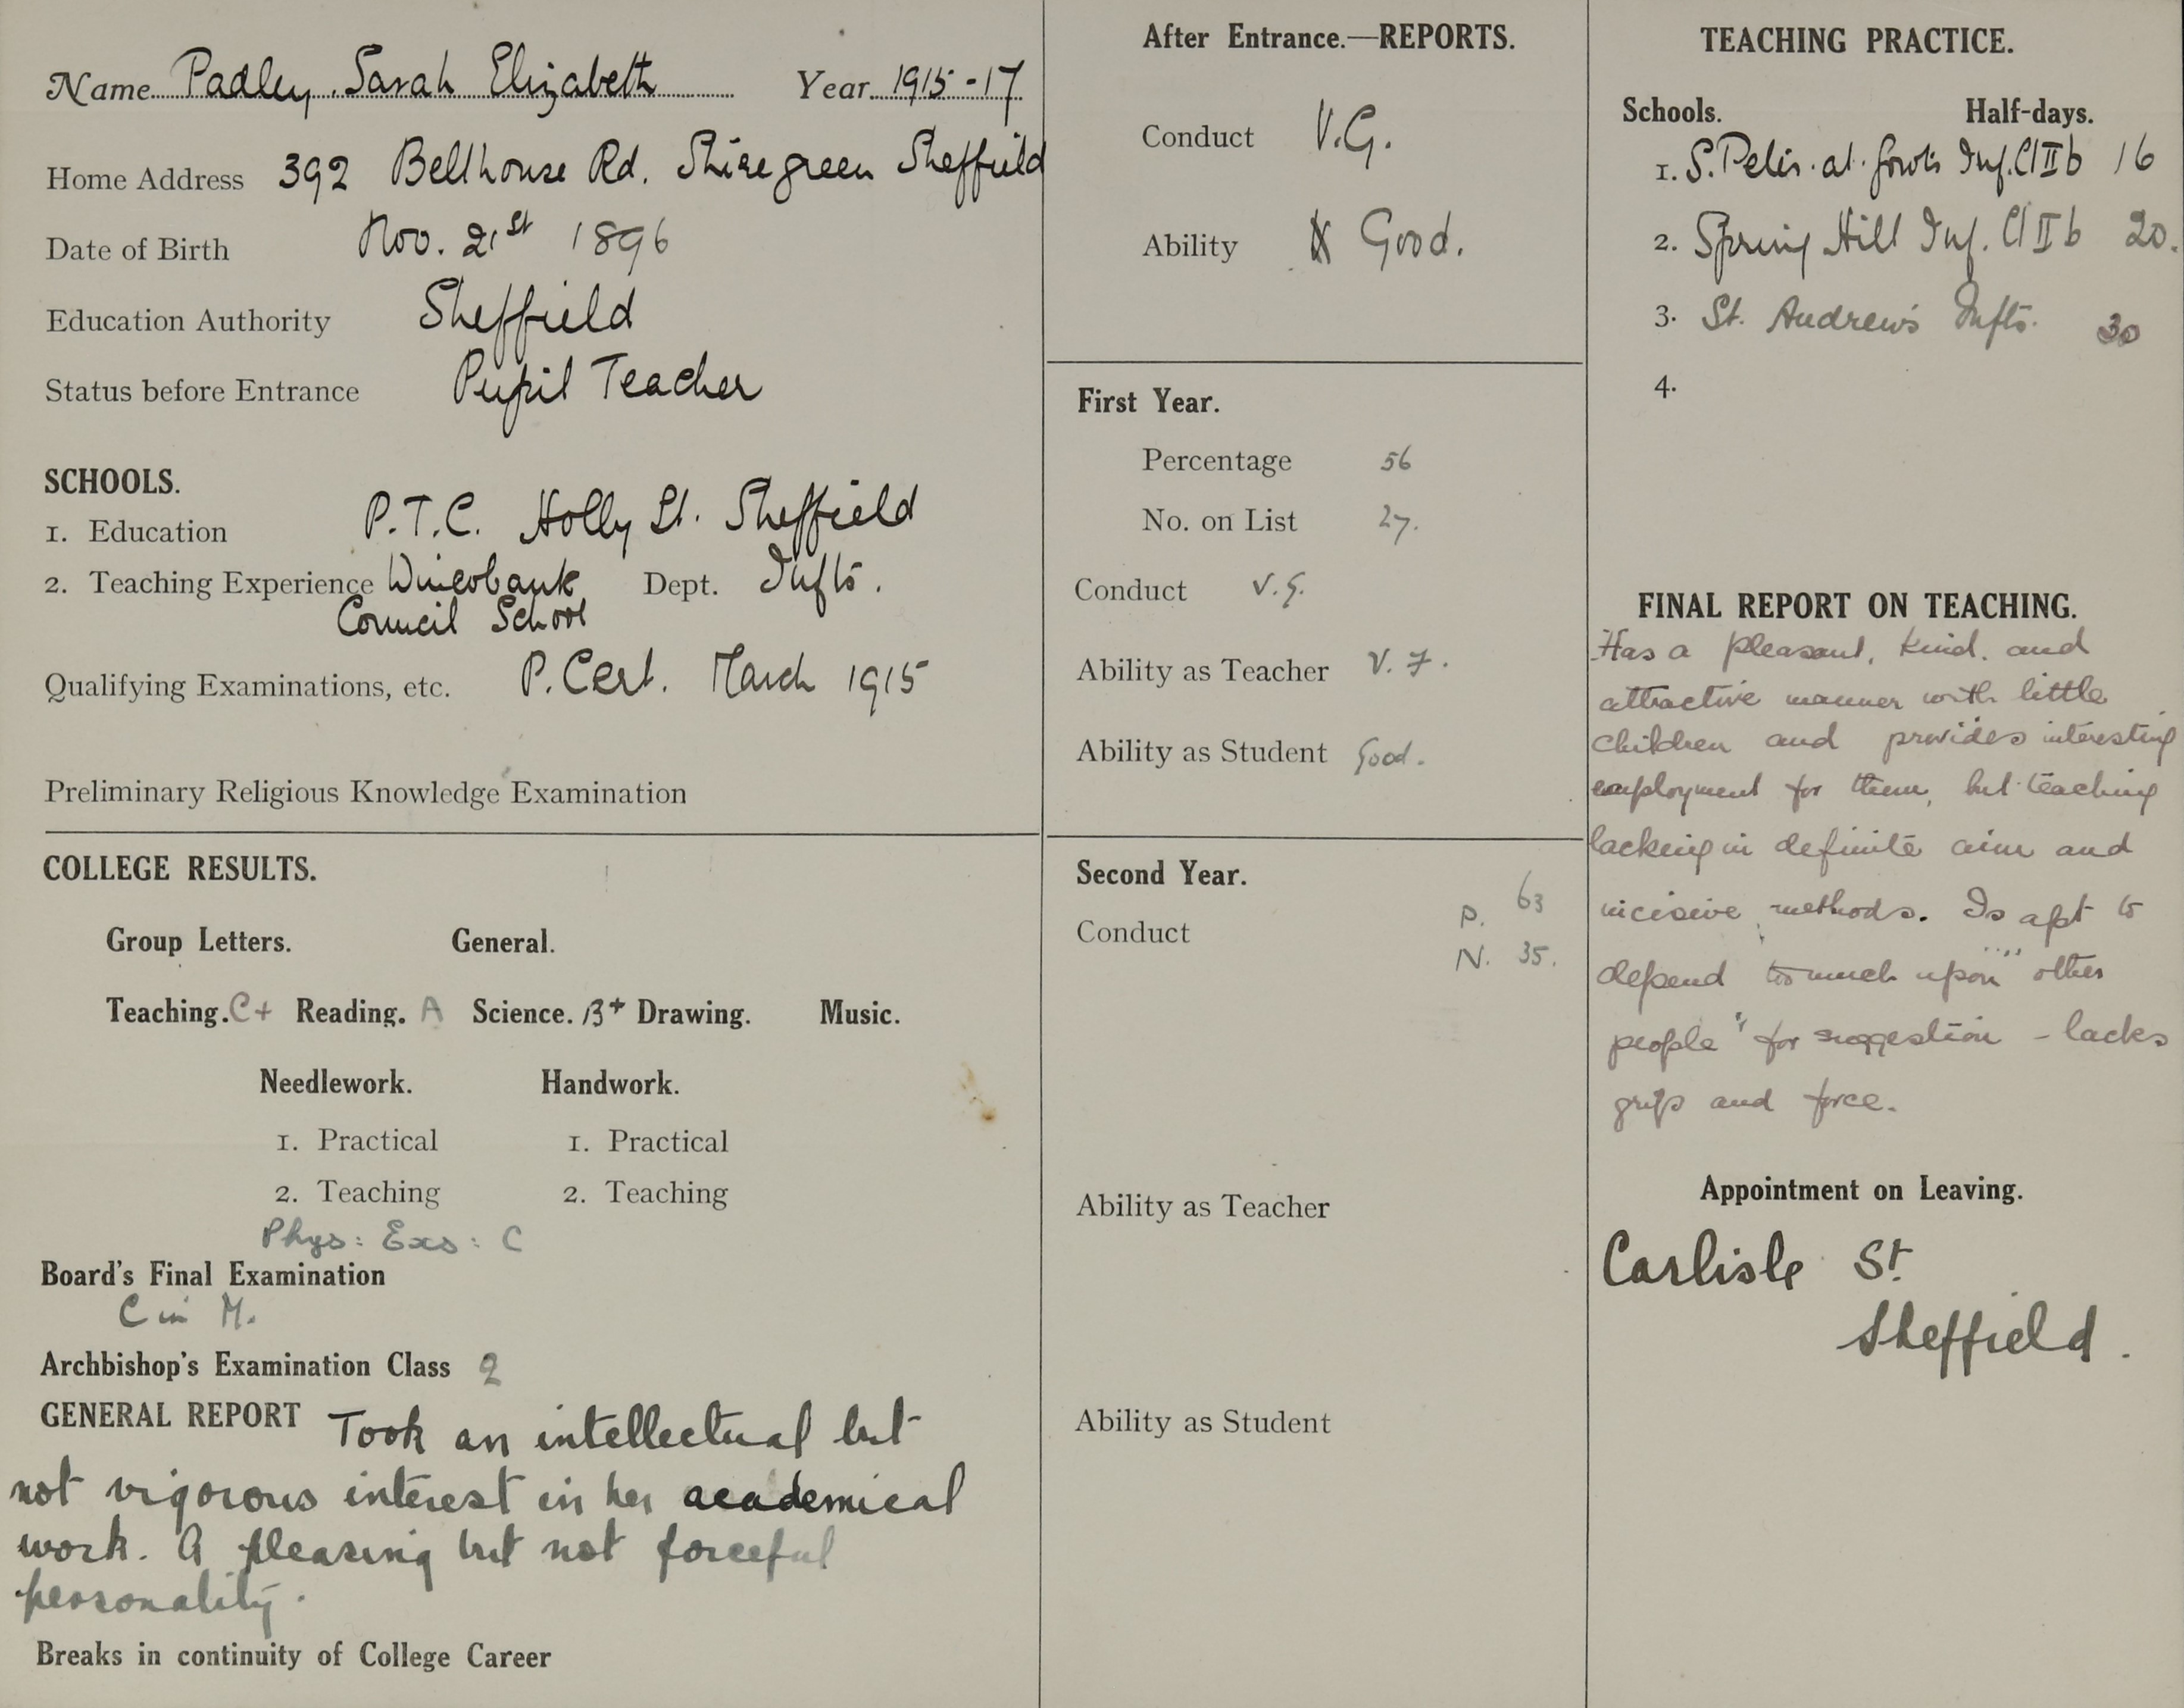 Name Padley, Sarah Elizabeth Year 1915-17
Home Address 392 Bellhouse Rd. Shiregreen Sheffield
Date of Birth Nov. 21st 1896
Education Authority Sheffield
Status before Entrance Pupil Teacher
SCHOOLS.
1. Education P.T.C. Holly St. Sheffield
2. Teaching Experience Wincobank Dept. Infts.
Council School
Qualifying Examinations, etc. P. Cert. March 1915
Preliminary Religious Knowledge Examination
COLLEGE RESULTS.
Group Letters. General.
Teaching. C+ Reading. A Science. B+ Drawing. Music.
Needlework. Handwork.
1. Practical 1. Practical
2. Teaching 2. Teaching
Phys: Exs: C
Board's Final Examination
C in M.
Archbishop's Examination Class 2
GENERAL REPORT Took an intellectual but
not vigorous interest in her academical
work. A pleasing but not forceful
personality.
Breaks in continuity of College Career
After Entrance.—REPORTS.
Conduct V.G.
Ability Good.
First Year.
Percentage 56
No. on List 27.
Conduct V.G.
Ability as Teacher V.F.
Ability as Student Good.
Second Year.
P. 63
Conduct
N. 35.
Ability as Teacher
Ability as Student
TEACHING PRACTICE.
Schools. Half-days.
1. S. Peter. at. Gowts Inf. Cl II b 16
2. Spring Hill Inf. Cl II b 20.
3. St. Andrew's Infts. 30
4.
FINAL REPORT ON TEACHING.
Has a pleasant, kind. and
attractive manner with little
children and provides interesting
employment for them, but teaching
lacking in definite aim and
incisive methods. Is apt to
depend too much upon "other
people" for suggestion - lacks
grip and force.
Appointment on Leaving.
Carlisle St.
Sheffield.